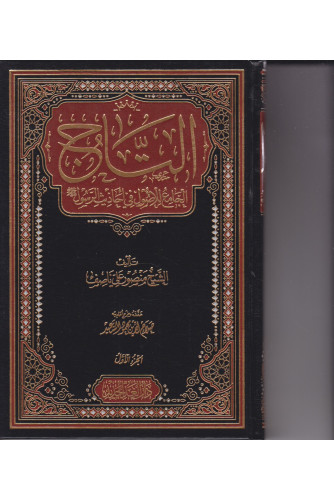 التاج
الجامع للأصول في أحاديث الرسول ﷺ
تأليف
الشيخ منصور علي ناصف
الجزء الأول